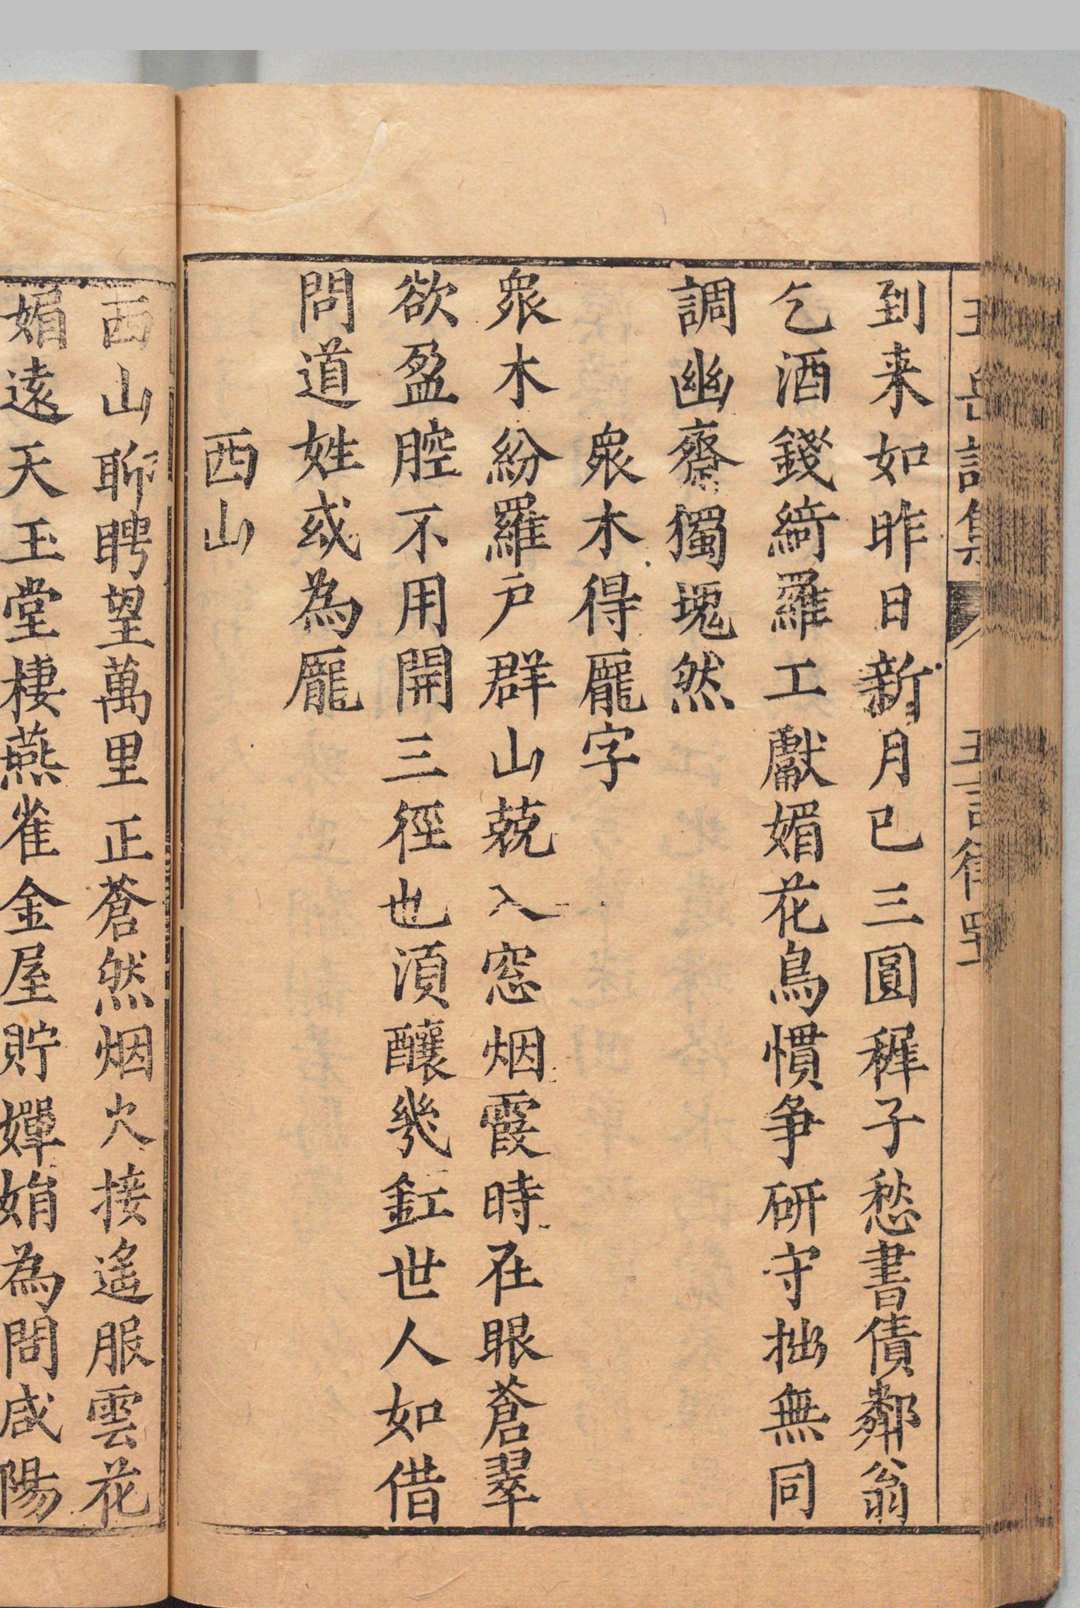 到来如昨日新月已三圓稺子愁書債鄰翁
乞酒錢綺羅工獻媚花鳥慣争研守拙無同
調幽齋獨塊然
衆木得龐字
衆木紛羅戶群山兢入窓烟霞時在眼蒼翠
欲盈腔不用開三徑也湏釀幾缸世人如借
問道姓或為龐
西山
西山聊聘望萬里正蒼然烟火接遙服雲花
媚遠天玉堂棲燕雀金屋貯嬋娟為問咸陽